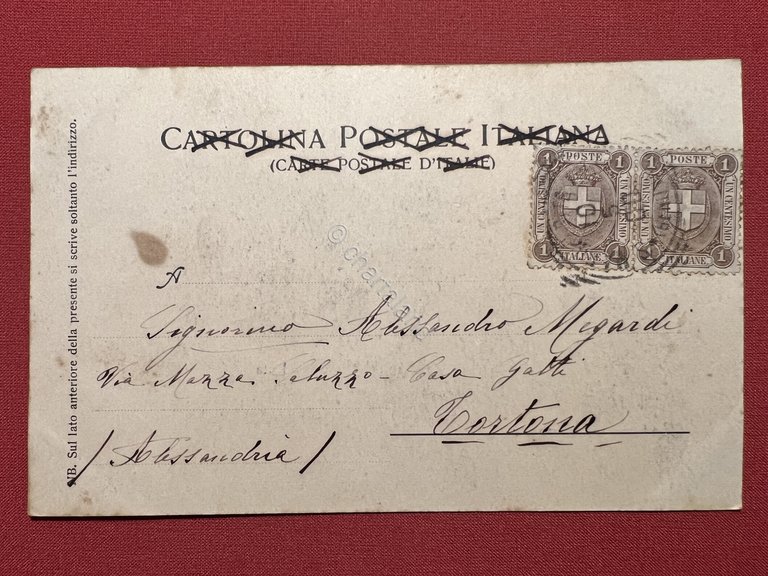 CARTOLINA POSTALE ITALIANA
(CARTE POSTALE D'ITALIE)
1 POSTE 1
UN CENTESIMO UN CENTESIMO
1 ITALIANE 1
1 POSTE 1
UN CENTESIMO UN CENTESIMO
1 ITALIANE 1
A
Signorino Alessandro Megardi
Via Mazza Saluzzo - Casa Gatti
Tortona
/Alessandria/
NB. Sul lato anteriore della presente si scrive soltanto l'indirizzo.